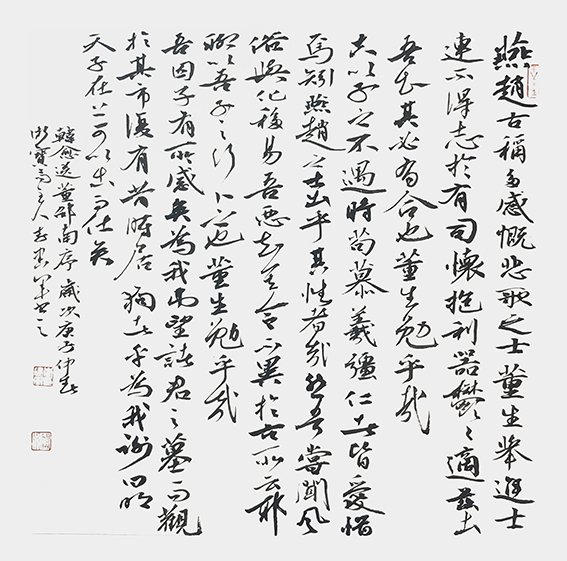 燕趙古稱多感慨悲歌之士董生舉進士
連不得志於有司懷抱利器鬱々適茲土
吾知其必有合也董生勉乎哉
夫以子之不遇時苟慕義彊仁者皆愛惜
焉矧燕趙之士出乎其性者哉然吾嘗聞風
俗與化移易吾惡知其今不異於古所云邪
聊以吾子之行卜之也董生勉乎哉
吾因子有所感矣為我吊望諸君之墓而觀
於其市復有昔時屠狗者乎為我謝曰明
天子在上可以出而仕矣
韓愈送董邵南序 歲次庚子仲春
主人 軍書之